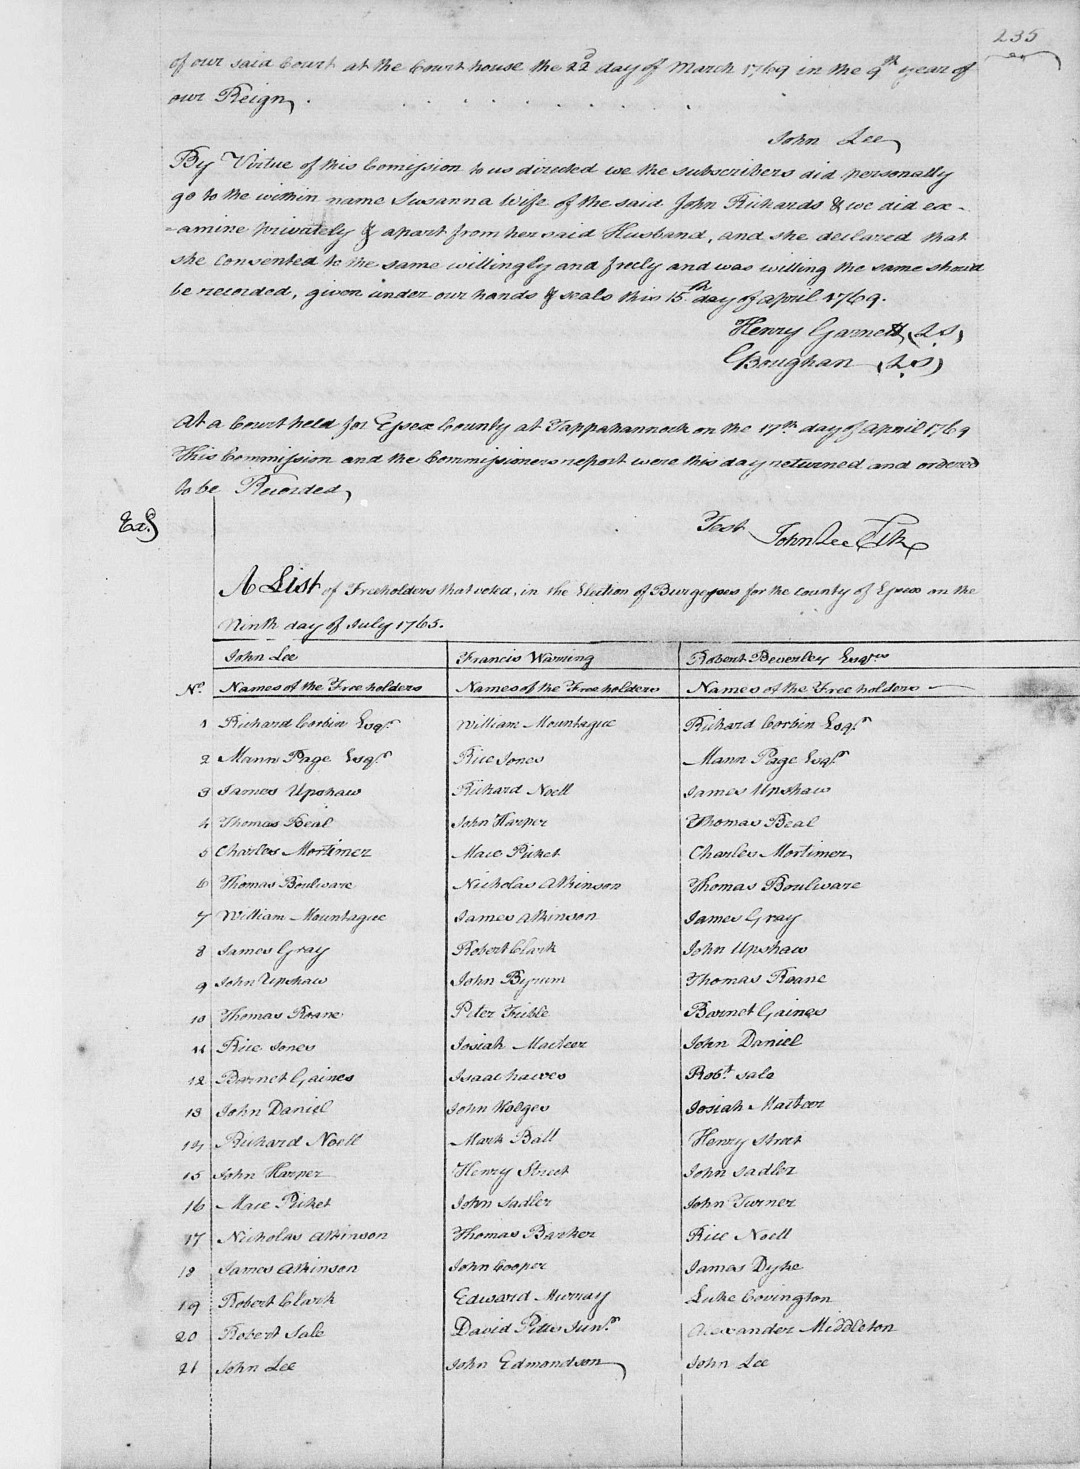 235
of our said Court at the Courthouse the 22d day of March 1769 in the 9th year of
our Reign.
John Lee
By Virtue of this Comission to us directed we the subscribers did personally
go to the within name Susanna Wife of the said John Richards & we did ex-
-amine privately & apart from her said Husband, and she declared that
she consented to the same willingly and freely and was willing the same should
be recorded, given under our hands & seals this 15th day of April 1769.
Henry Garnett (LS)
Boughan (LS)
At a Court held for Essex County at Tappahannock on the 17th day of April 1769
This Commission and the Commissioners report were this day returned and ordered
to be Recorded,
Test John Lee Clk
Exd
A List of Freeholders that voted, in the Election of Burgesses for the County of Essex on the
Ninth day of July 1765.
John Lee Francis Waring Robert Beverley Esqrs
No. Names of the Freeholders Names of the Freeholders Names of the Freeholders
1 Richard Corbin Esqr. William Mountague Richard Corbin Esqr.
2 Mann Page Esqr. Rice Jones Mann Page Esqr.
3 James Upshaw Richard Noell James Upshaw
4 Thomas Beal John Harper Thomas Beal
5 Charles Mortimer Mace Picket Charles Mortimer
6 Thomas Boulware Nicholas Atkinson Thomas Boulware
7 William Mountague James Atkinson James Gray
8 James Gray Robert Clark John Upshaw
9 John Upshaw John Byrum Thomas Roane
10 Thomas Roane Peter Barnet Gaines
11 Rice Jones Josiah Macteer John Daniel
12 Barnet Gaines Isaac hawes Robt. Sale
13 John Daniel John Hodges Josiah Macteer
14 Richard Noell Mark Ball Henry Street
15 John Harper Henry Street John Sadler
16 Mace Picket John Sadler John Turner
17 Nicholas Atkinson Thomas Barker Rice Noell
18 James Atkinson John Cooper James Dyke
19 Robert Clark Edward Murray Luke Covington
20 Robert Sale David Pitts Junr. Alexander Middleton
21 John Lee John Edmondson John Lee